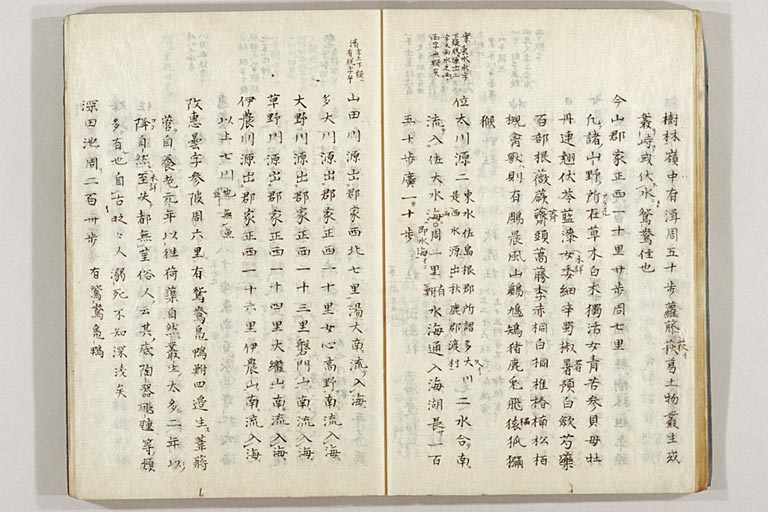 樹林嶺中有澤周五十歩蘿藤荻葛土物叢生或
叢峙或伏水鴛鴦住也
今山郡家正西一十里廿歩周七里
凡諸山野所在草木白朮獨活女青苦參貝母牡
丹連翹伏苓藍漆女委細辛蜀椒署預白歛芍藥
百部根薇蕨薺頭蒿藤李赤桐白桐椎椿楠松栢
槻禽獸則有鵰晨風山鷄鳩鴙猪鹿兎飛猨狐獼
猴
位太川源二
東水佐島根郡所謂多太川
西水源出秋鹿郡渡村
二水合南
流入佐太水海
周一里
水海通入海湖長一百
五十歩廣一十歩
山田川源出郡家西北七里湯大南流入海
多太川源出郡家正西一十里女心高野南流入海
大野川源出郡家正西一十三里磐門山南流入海
草野川源出郡家正西一十四里大繼山南流入海
伊農川源出郡家正西一十六里伊農山南流入海
以上七川
無魚
參陂周六里有鴛鴦鳧鴨鮒四邊生葦蒋
菅自養老元年以往荷蕖自然叢生太多二年以
降自然至失都無莖俗人云其底陶器
等類
多有也自古時々人溺死不知深淺矣
深田池周二百卅歩
有鴛鴦鳧鴨